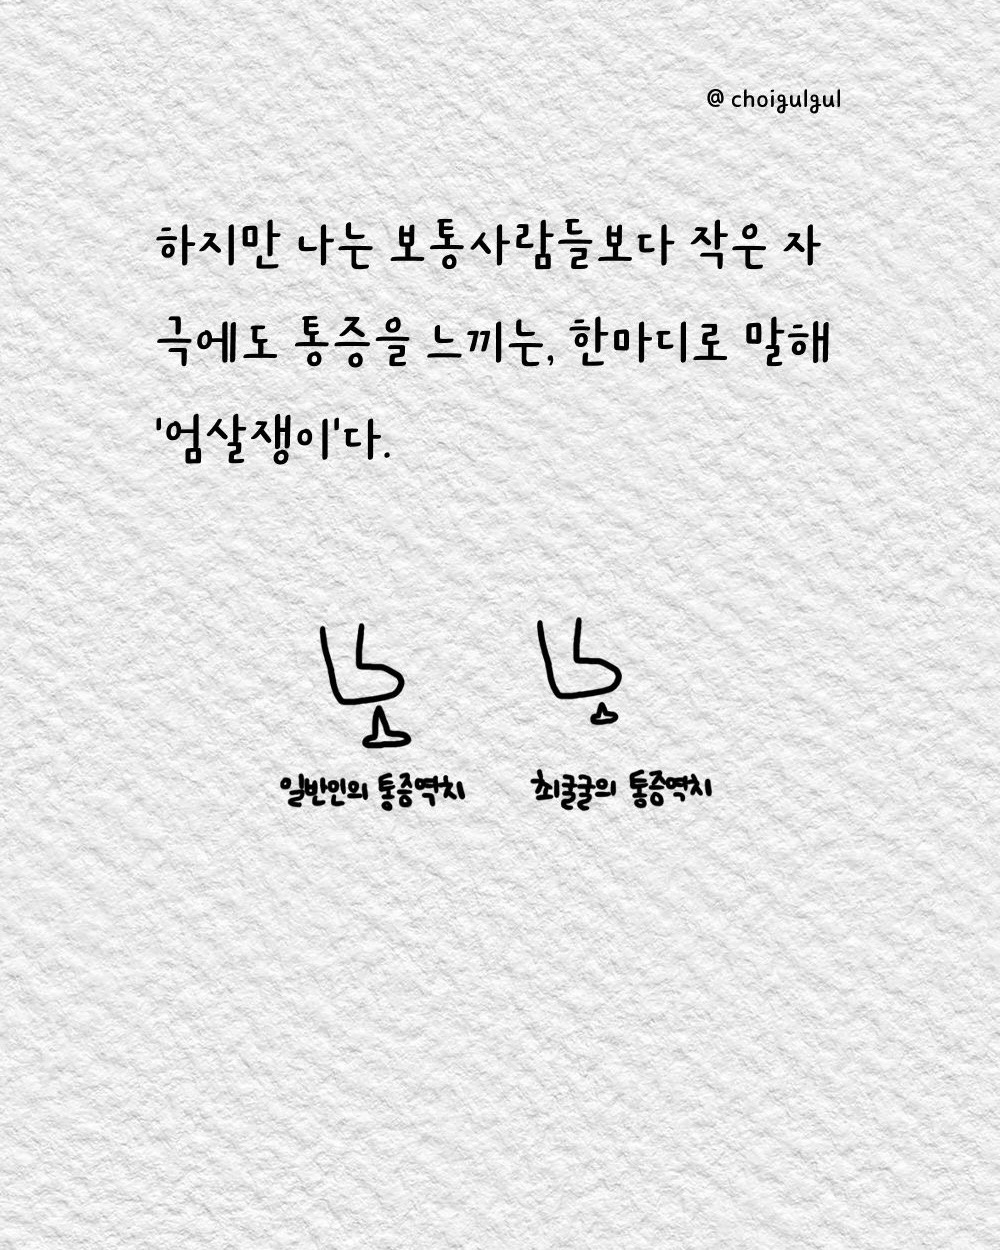 @ choigulgul
하지만 나는 보통사람들보다 작은 자
극에도 통증을 느끼는, 한마디로 말해
'엄살쟁이'다.
일반인의 통증역치 최굴굴의 통증역치